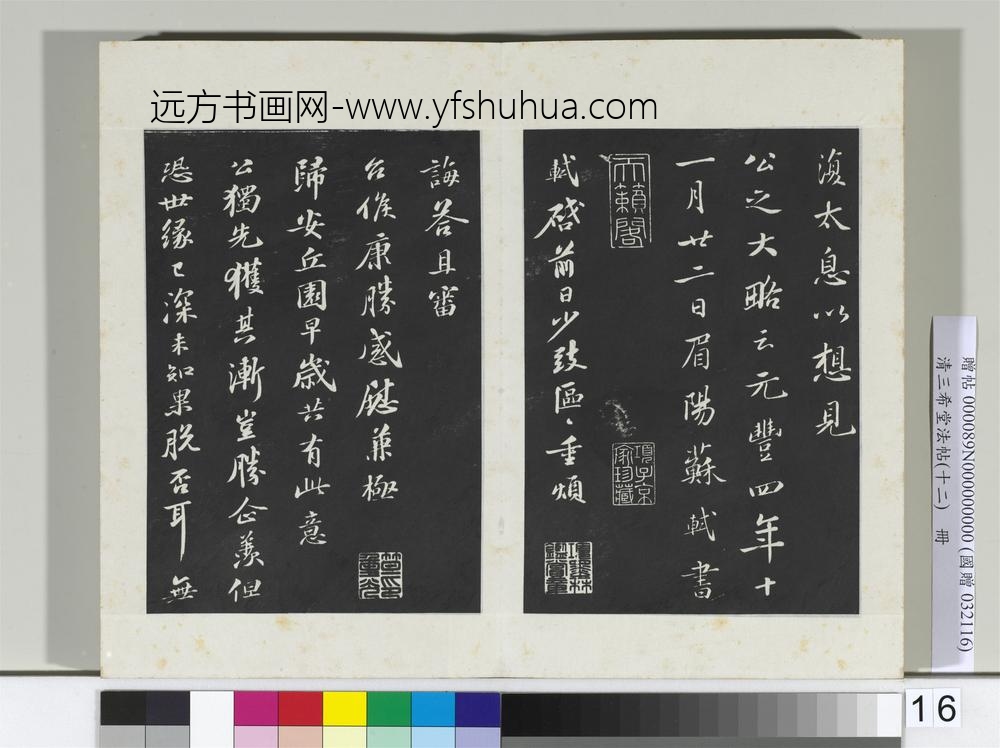 远方书画网-www.yfshuhua.com
復太息以想見
公之大略云元豐四年十
一月廿二日眉陽蘇軾書
天籟閣
項子京家珍藏
軾啓前日少致區〻重煩
誨答且審
台候康勝感慰兼極
歸安丘園早歲共有此意
公獨先獲其漸豈勝企羨但
恐世緣已深未知果脫否耳無
贈帖 000089N000000000 (國贈 032116)
清三希堂法帖(十二) 冊
16